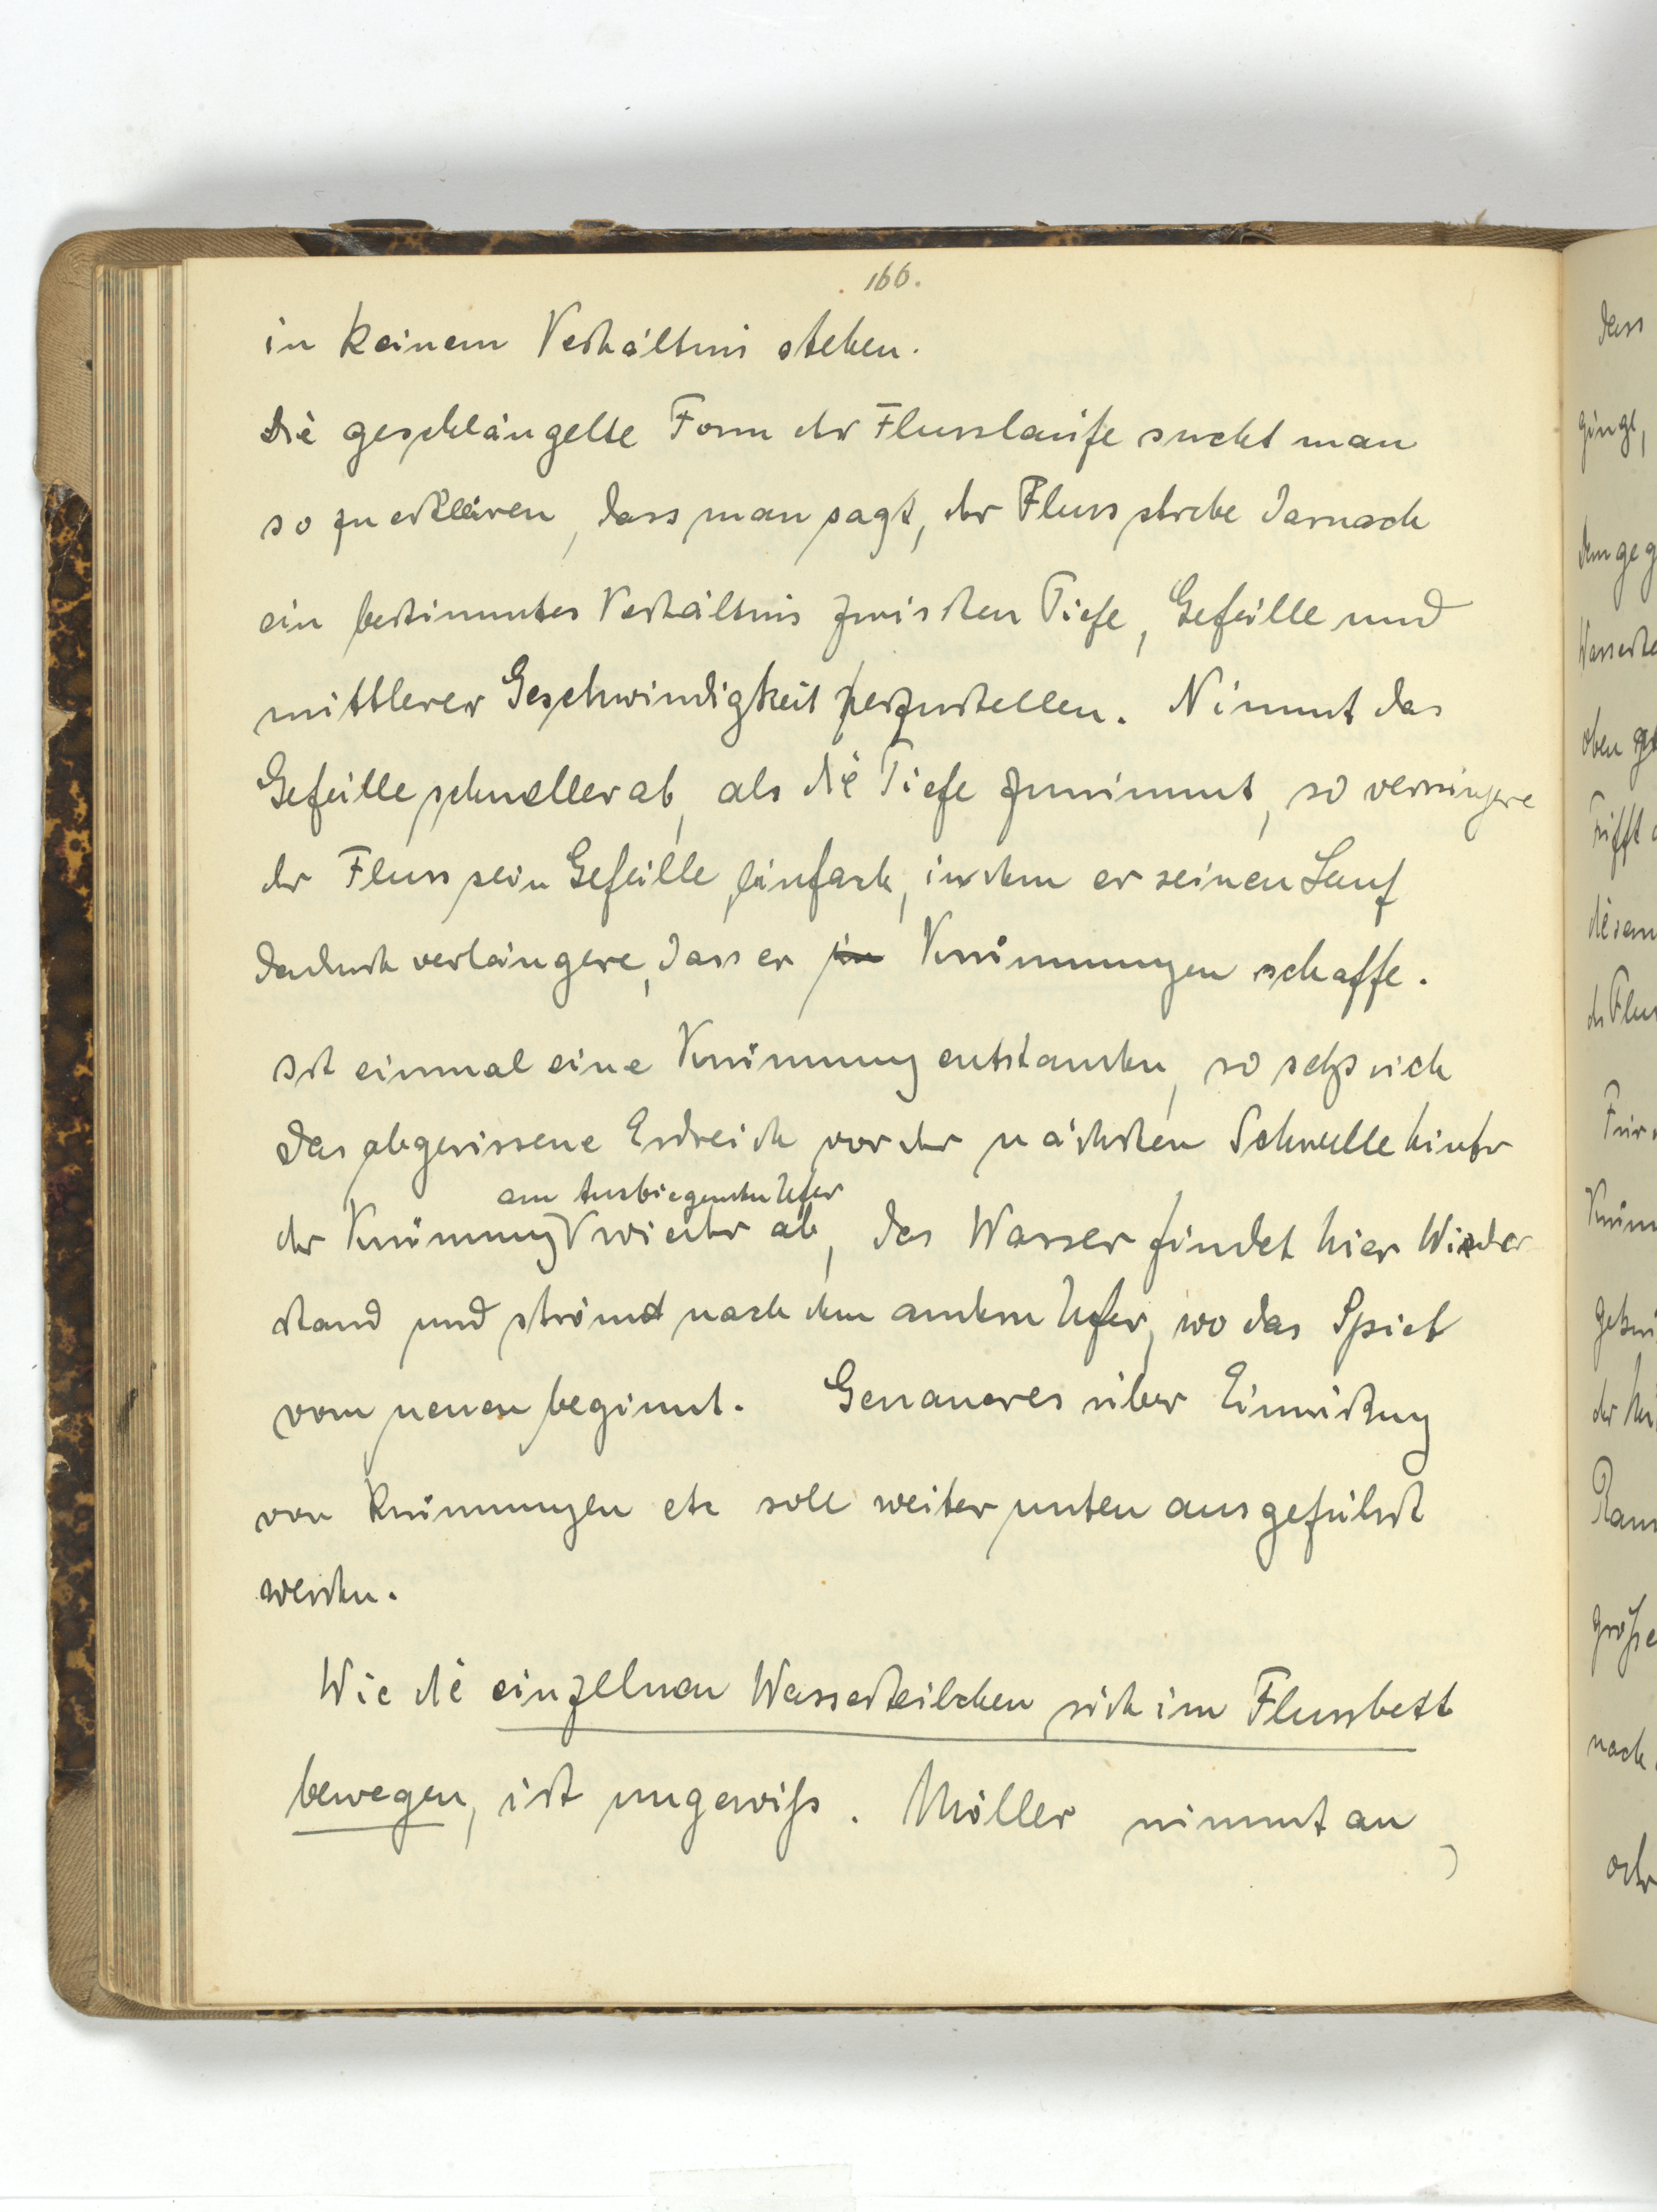 166.
in keinem Verhältnis stehen.
Die geschlängelte Form der Flussläufe sucht man
so zu erklären, dass man sagt, der Fluss strebe darnach
ein bestimmtes Verhältnis zwischen Tiefe, Gefälle und
mittlerer Geschwindigkeit herzustellen. Nimmt das
Gefälle schneller ab, als die Tiefe zunimmt, so verringere
der Fluss sein Gefälle einfach, indem er seinen Lauf
dadurch verlängere, dass er in Krümmungen schaffe.
Ist einmal eine Krümmung entstanden, so setzt sich
das abgerissene Erdreich vor der nächsten Schwelle hinter
am Ausbiegenden Ufer
der Krümmung wieder ab, das Wasser findet hier Wieder
stand und strömt nach dem andern Ufer, wo das Spiel
vom neuen beginnt. Genaueres über Einwirkung
von Krümmungen etc soll weiter unten ausgeführt
werden.
Wie die einzelnen Wasserteilchen sich im Flussbett
bewegen, ist ungewiss. Möller nimmt an,
dass
gingt,
dem geg
Wasserte
oben
Trifft
diesem
der Flus
Für
Krüm
der
Raum
grösse
nach
oder